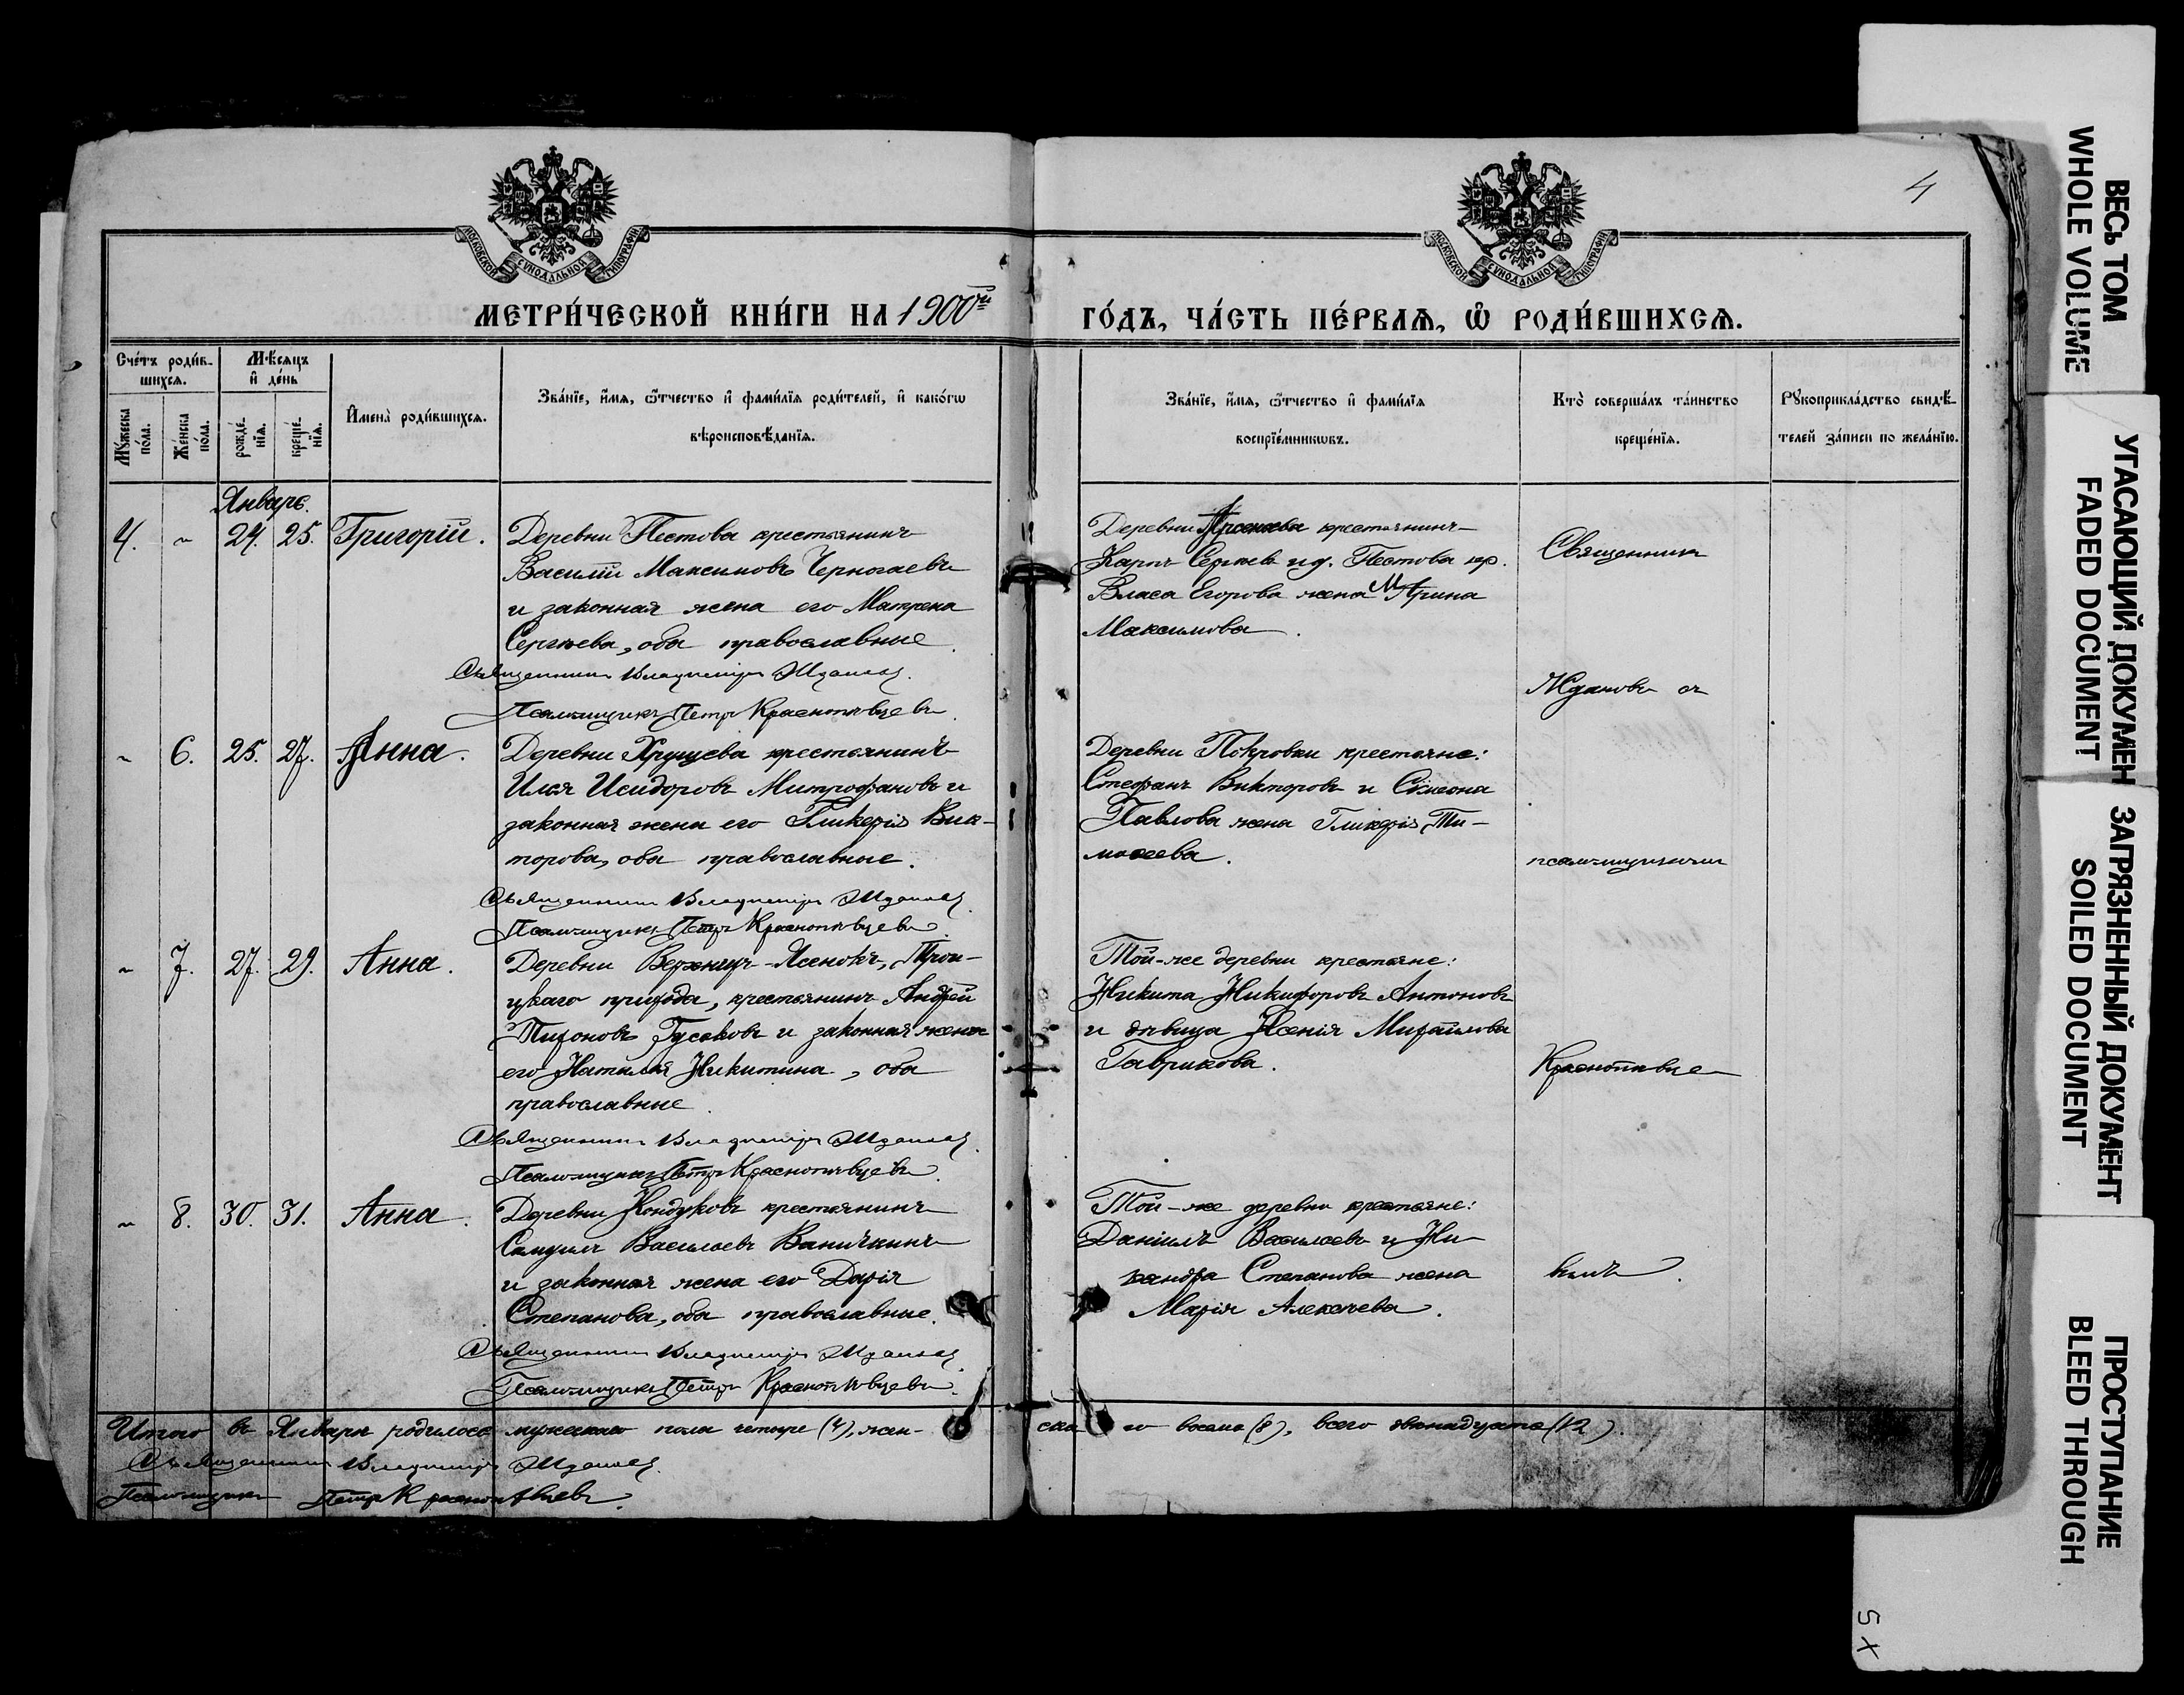 4
МОСКОВСКОЙ СѴНОДАЛЬНОЙ ТИПОГРАФІИ
МОСКОВСКОЙ СѴНОДАЛЬНОЙ ТИПОГРАФІИ
МЕТРИ́ЧЕСКОЙ КНИ́ГИ НА 1900й ГО́ДЪ, ЧА́СТЬ ПЕ́РВАѦ, Ѡ҆ РОДИ́ВШИХСѦ.
Сче́тъ роди́в-
шихсѧ.
Мѣ́сѧцъ
и҆ де́нь
Мꙋ́жеска
по́ла.
Же́нска
по́ла.
рожде́-
нїѧ.
креще́-
нїѧ.
И҆мена̀ роди́вшихсѧ.
Зва́нїе, и҆́мѧ, ѻ҆́тчество и҆ фами́лїѧ роди́телей, и҆ како́гѡ
вѣроисповѣ́данїѧ.
Зва́нїе, и҆́мѧ, ѻ҆́тчество и҆ фами́лїѧ
воспрїе́мникѡвъ.
Кто̀ соверша́лъ та́инство
креще́нїѧ.
Рꙋкоприкла́дство свидѣ́-
телей за́писи по жела́нїю.
Январь.
4. " 24. 25. Григорій.
Деревни Пестова крестьянинъ
Василій Максимовъ Черногаевъ
и законная жена его Матрена
Сергѣева, оба православные.
Священникъ Владиміръ Ждановъ.
Псаломщикъ Петръ Краснопѣвцевъ.
Деревни крестьянинъ
Карпъ Сергѣевъ и д. Пестова кр.
Власа Егорова жена Ирина
Максимова.
" 6. 25. 27. Анна.
Деревни Хрущева крестьянинъ
Илья Исидоровъ Митрофановъ и
законная жена его Гликерія Вик-
торова, оба православные.
Священникъ Владиміръ Ждановъ.
Псаломщикъ Петръ Краснопѣвцевъ.
Деревни Покровки крестьяне:
Стефанъ Викторовъ и Сѵмеона
Павлова жена Гликерія Ти-
моѳеева.
" 7. 27. 29. Анна.
Деревни Верхнихъ-Ясенокъ, Трои-
цкаго прихода, крестьянинъ Андрей
Тихоновъ Гусаковъ и законная жена
его Наталья Никитина, оба
православные.
Священникъ Владиміръ Ждановъ.
Псаломщикъ Петръ Краснопѣвцевъ.
Той-же деревни крестьяне:
Никита Никифоровъ Антоновъ
и дѣвица Ксенія Михайлова
Гаврикова.
" 8. 30. 31. Анна.
Деревни Кондуковъ крестьянинъ
Самуилъ Васильевъ Ваничкинъ
и законная жена его Дарія
Степанова, оба православные.
Священникъ Владиміръ Ждановъ.
Псаломщикъ Петръ Краснопѣвцевъ.
Той-же деревни крестьяне:
Даніилъ Васильевъ и Ни-
кандра Степанова жена
Марія Алексѣева.
Священникъ
Ждановъ съ
псаломщикомъ
Краснопѣвце-
вымъ.
Итого въ Январѣ родилось мужескаго пола четыре (4), жен-
ска го восемь (8), всего двѣнадцать (12).
Священникъ Владиміръ Ждановъ.
Псаломщикъ Петръ Краснопѣвцевъ.
ВЕСЬ ТОМ
WHOLE VOLUME
УГАСАЮЩИЙ ДОКУМЕН
FADED DOCUMENT
ЗАГРЯЗНЕННЫЙ ДОКУМЕНТ
SOILED DOCUMENT
ПРОСТУПАНИЕ
BLED THROUGH
5X